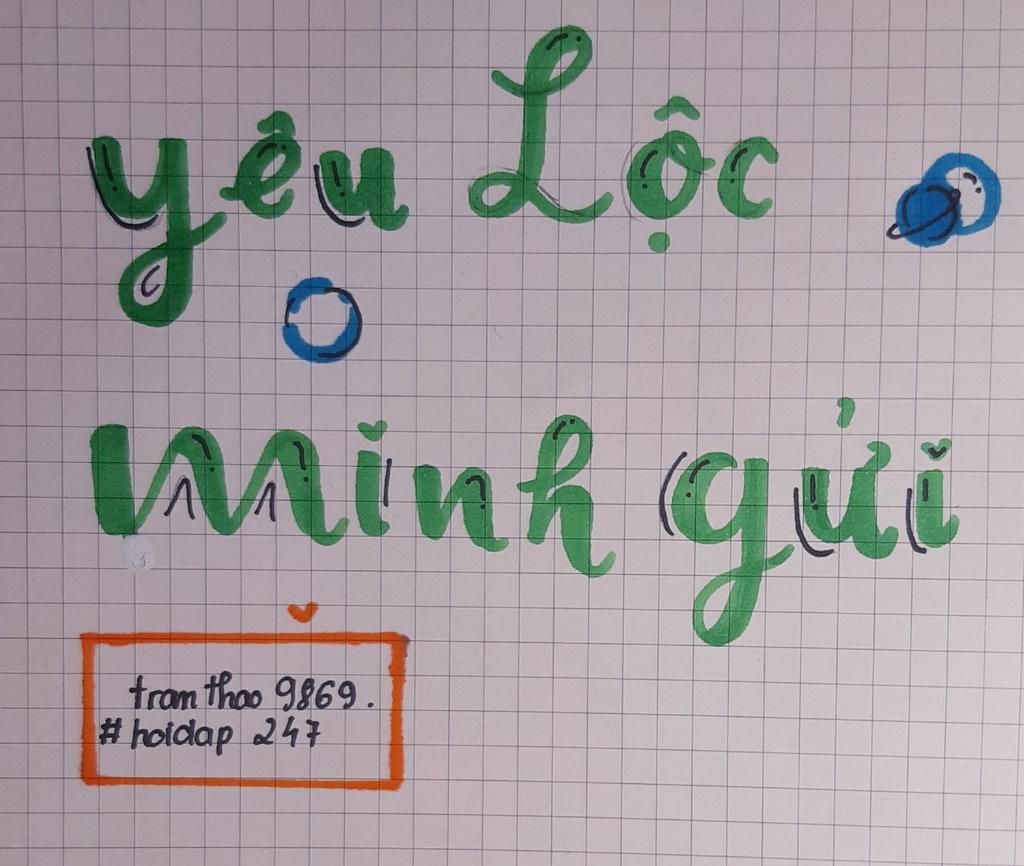 yêu Lộc
Mình gửi
tramthao 9869.
# hoidap 247